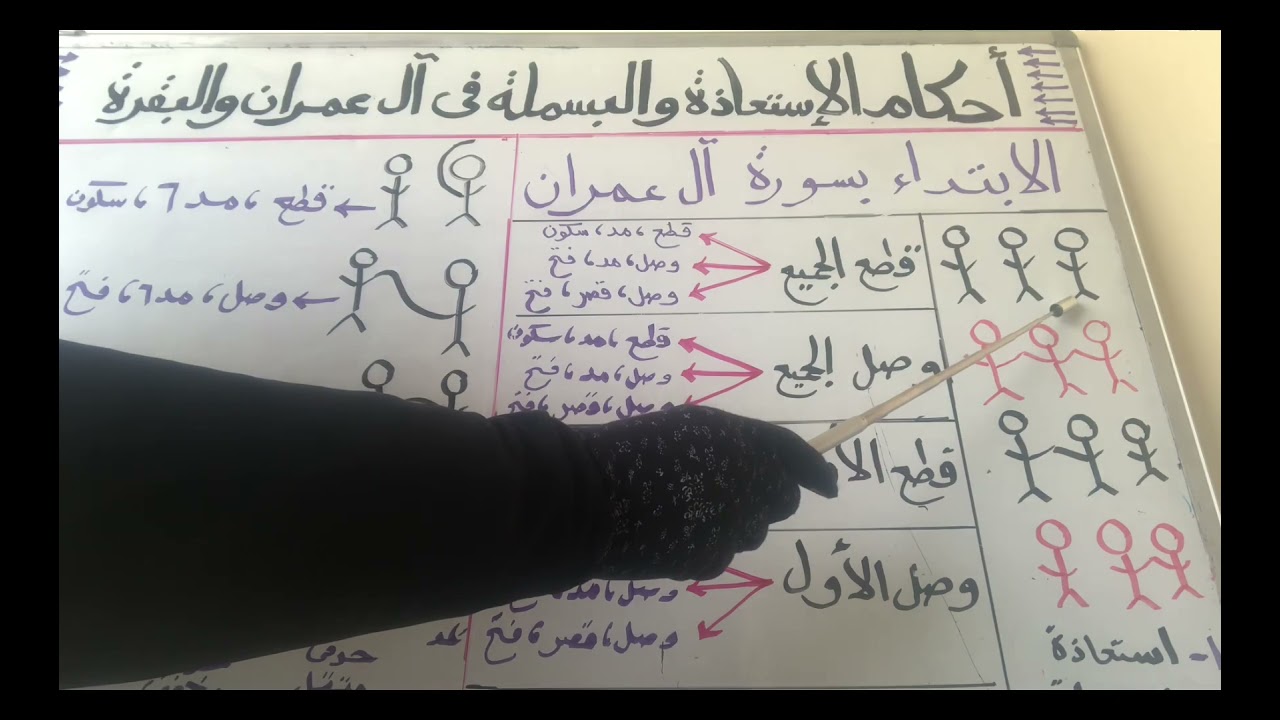 أحكام الإستعاذة والبسملة فى آل عمران والبقرة
الابتداء بسورة آل عمران
قطع الجميع
قطع، مد، سكون
وصل، مد، فتح
وصل، قصر، فتح
وصل الجميع
قطع، مد، سكون
وصل، مد، فتح
وصل، قصر، فتح
قطع
وصل الأول
وصل، مد،
وصل، قصر، فتح
١- استعاذة
قطع، مد ٦، سكون
وصل، مد ٦، فتح